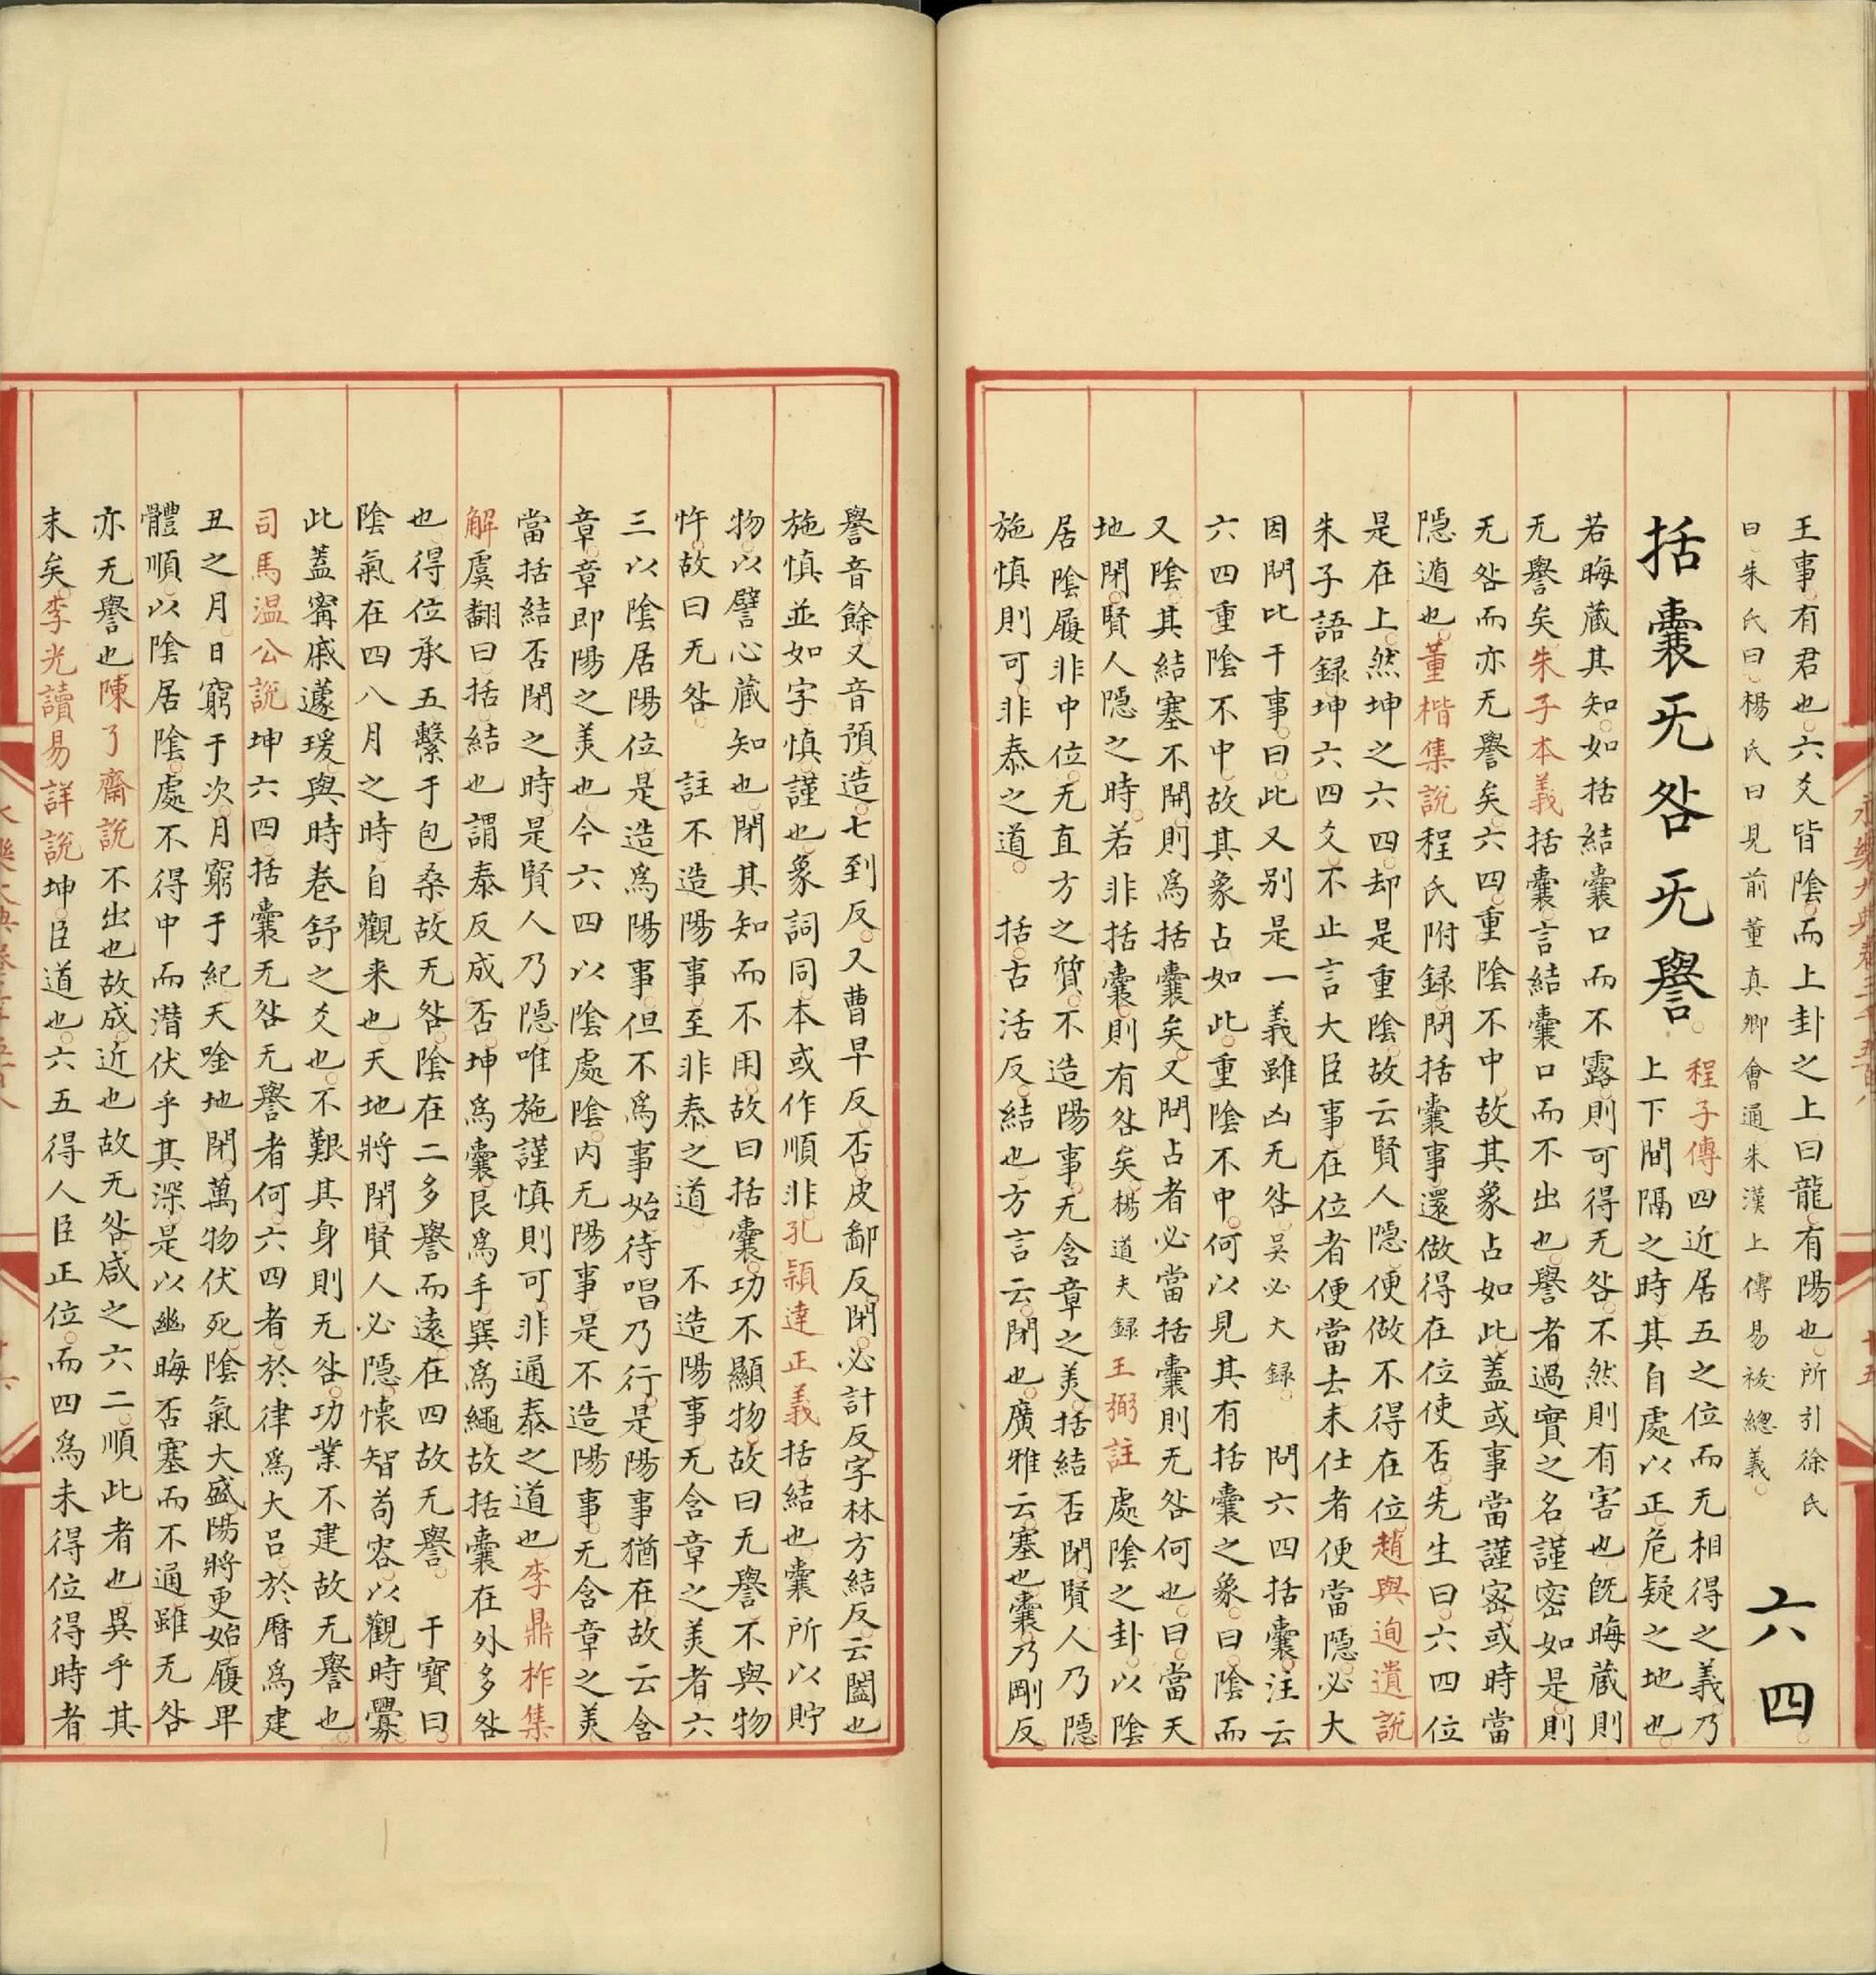 王事有君也六爻皆陰而上卦之上曰龍有陽也所引徐氏
曰朱氏曰楊氏曰見前董真卿會通朱漢上傳易祓總義
六四
括囊无咎无譽
程子傳四近居五之位而无相得之義乃
上下間隔之時其自處以正危疑之地也
若晦藏其知如括結囊口而不露則可得无咎不然則有害也旣晦藏則
无譽矣朱子本義括囊言結囊口而不出也譽者過實之名謹密如是則
无咎而亦无譽矣六四重陰不中故其象占如此蓋或事當謹密或時當
隱遁也董楷集說程氏附録問括囊事還做得在位使否先生曰六四位
是在上然坤之六四却是重陰故云賢人隱便做不得在位趙與迿遺說
朱子語録坤六四爻不止言大臣事在位者便當去未仕者便當隱必大
因問比干事曰此又别是一義雖凶无咎吳必大録 問六四括囊注云
六四重陰不中故其象占如此重陰不中何以見其有括囊之象曰陰而
又陰其結塞不開則爲括囊矣又問占者必當括囊則无咎何也曰當天
地閉賢人隱之時若非括囊則有咎矣楊道夫録王弼註處陰之卦以陰
居陰履非中位无直方之質不造陽事无含章之美括結否閉賢人乃隱
施慎則可非泰之道 括古活反結也方言云閉也廣雅云塞也囊乃剛反
譽音餘又音預造七到反又曹早反否皮鄙反閉必計反字林方結反云闔也
施慎並如字慎謹也象詞同本或作順非孔穎達正義括結也囊所以貯
物以譬心藏知也閉其知而不用故曰括囊功不顯物故曰无譽不與物
忤故曰无咎 註不造陽事至非泰之道 不造陽事无含章之美者六
三以陰居陽位是造爲陽事但不爲事始待唱乃行是陽事猶在故云含
章章即陽之美也今六四以陰處陰内无陽事是不造陽事无含章之美
當括結否閉之時是賢人乃隱唯施謹慎則可非通泰之道也李鼎祚集
解虞翻曰括結也謂泰反成否坤爲囊艮爲手巽爲繩故括囊在外多咎
也得位承五繫于包桑故无咎陰在二多譽而遠在四故无譽 干寶曰
陰氣在四八月之時自觀来也天地將閉賢人必隱懷智苟容以觀時釁
此蓋甯戚蘧瑗與時卷舒之爻也不艱其身則无咎功業不建故无譽也
司馬温公說坤六四括囊无咎无譽者何六四者於律爲大呂於曆爲建
丑之月日窮于次月窮于紀天唫地閉萬物伏死陰氣大盛陽將更始履畢
體順以陰居陰處不得中而潜伏乎其深是以幽晦否塞而不通雖无咎
亦无譽也陳了齋說不出也故成近也故无咎咸之六二順此者也異乎其
末矣李光讀易詳說坤臣道也六五得人臣正位而四爲未得位得時者